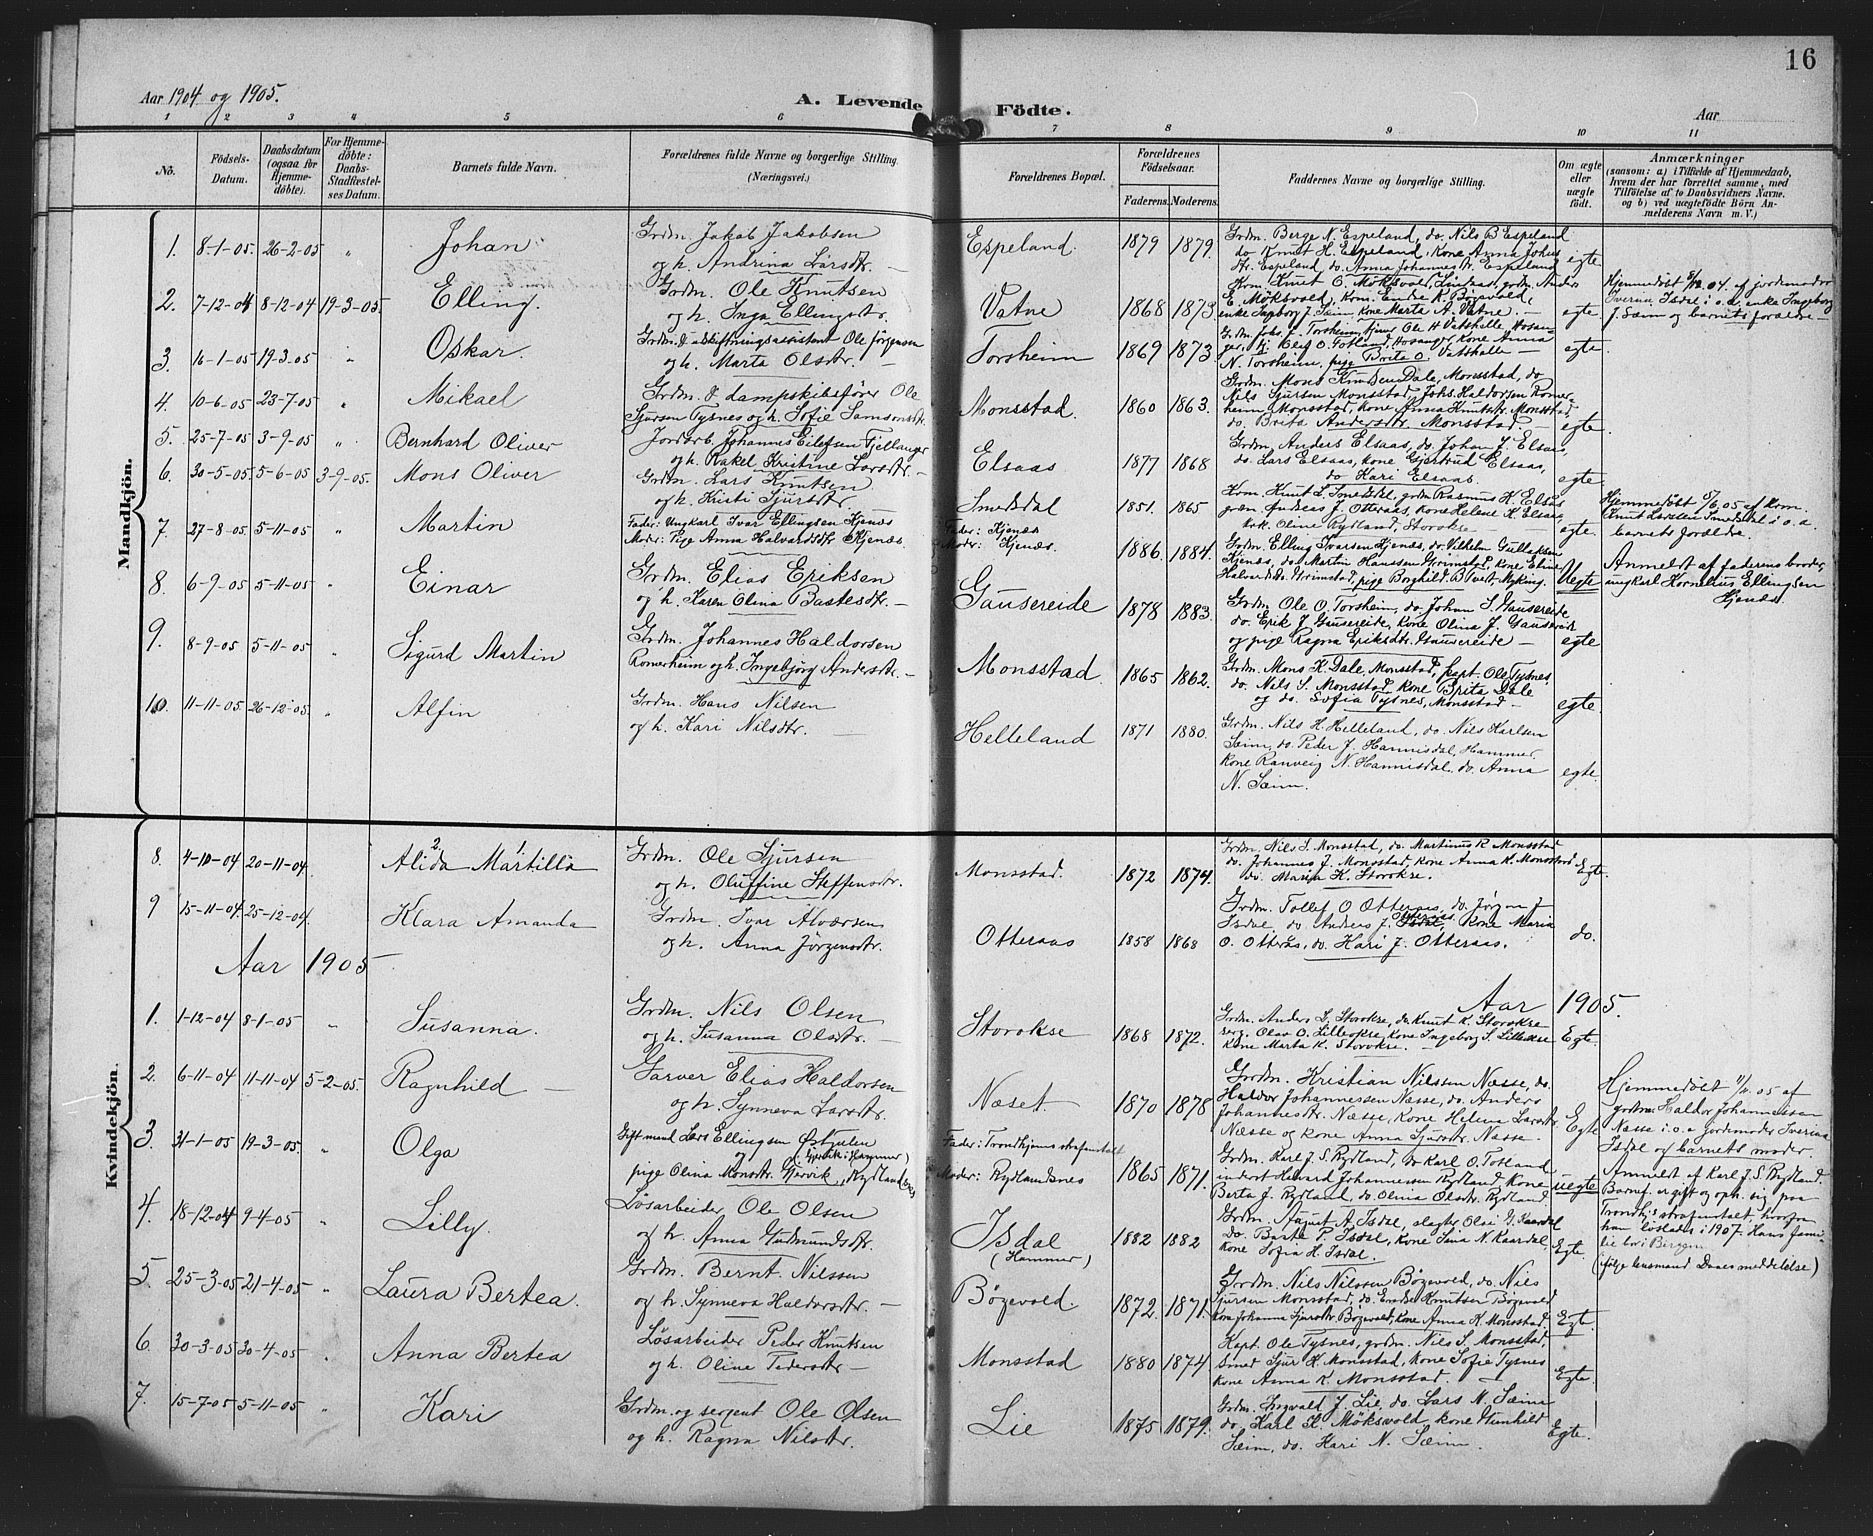 16
Aar 1904 og 1905.
A. Levende Födte.
Aar
1 2 3 4 5 6 7 8 9 10 11
No.
Födsels-Datum.
Daabsdatum (ogsaa for Hjemmedöbte).
For Hjemmedöbte: Daabs-Stadfæstelses Datum.
Barnets fulde Navn.
Forældrenes fulde Navne og borgerlige Stilling. (Næringsvei.)
Forældrenes Bopæl.
Forældrenes Födselsaar.
Faderens. Moderens.
Faddernes Navne og borgerlige Stilling.
Om ægte eller uægte födt.
Anmærkninger
(saasom: a) i Tilfælde af Hjemmedaab, hvem der har forrettet samme, med Tilföielse af to Daabsvidners Navne. og b) ved uægtefödte Börn Anmelderens Navn m. V.)
Mandkjön.
1. 8-1-05. 26-2-05 " Johan
Grdm. Jakob Jakobsen
og h. Andrina Larsdtr. —
Espeland. 1879 1879.
Grdm. Berge N. Espeland, do. Nils B Espeland
do Knut H. Espeland, kone Anna Johs
dtr. Espeland, do. Anna Johannesdtr. Espeland
egte.
2. 7-12-04 8-12-04 19-3-05. Elling.
Grdm. Ole Knutsen
og h. Inga Ellingsdtr.
Vatne 1868 1873
Kom. Knut O. Möksvold, Lindaas, grdm. Anders
E. Möksvold, kom. Endre K. Bøgevold,
enke Ingeborg J. Sæim, kone Marta A. Vatne. —
egte.
Hjemmedöbt 8/12 04. af jordemoder
Iverna Isdal i o. a. enke Ingeborg
J. Sæim og barnets forældre —
3. 16-1-05 19-3-05 " Oskar.
Grdm. & udskiftningsassistent Ole Jörgensen
og h. Marta Olsdtr. —
Torsheim 1869 1873
N. Torsheim, pige Brita O. Vatshelle —
egte.
4. 10-6-05 23-7-05 " Mikael
Grdm. & dampskibsförer Ole
Sjursen Tysnes og h. Sofie Samsonsdtr.
Monsstad. 1860 1863.
Grdm. Mons Knudsen Dale, Monsstad, do.
Nils Sjursen Monsstad, Johs. Haldorsen Romer-
heim, Monsstad, kone Anna Knutsdtr. Monsstad
do. Brita Andersdtr. Monsstad —
egte.
5. 25-7-05 3-9-05 " Bernhard Oliver
Jordarb. Johannes Eilefsen Fjellanger
og h. Rakel Kristine Larsdtr. —
Elsaas 1877 1868
Grdm. Anders Elsaas, do. Johan J. Elsaas,
do. Lars Elsaas, kone Gjertrud Elsaas,
do Kari Elsaas.
egte.
6. 30-5-05 5-6-05 3-9-05. Mons Oliver
Grdm. Lars Knutsen
og h. Kristi Sjursdtr.
Smedsdal 1851. 1865
Kom. Knut L. Smedsdal, grdm Rasmus K. Elsås
grdm. Andreas J. Otteraas, kone Helene K. Elsaas,
Oline Rydland, Storokse
egte.
Hjemmedöbt 5/6 05 af kom.
Knut Larsen Smedsdal i o. a.
barnets forældre.
7. 27-8-05 5-11-05 " Martin
Fader: Ungkarl Ivar Ellingsen Kjenes
Moder: Pige Anna Halvardsdtr Kjenes.
Fader: Kjenæs
Moder: Kjenæs. 1886 1884.
Grdm. Elling Ivarsen Kjenæs, do. Vilhelm Gullaksen
Kjenæs, do. Martin Hanssen Grimstad, kone Eline
Halvardsdtr. Grimstad, pige Borghild B Tveit, Myking.
Uegte
Anmeldt af faderens broder,
ungkarl Kornelius Ellingsen
Kjenæs.
8. 6-9-05 5-11-05 " Einar
Grdm. Elias Eriksen
og h. Karen Olina Bastesdtr. —
Gausereide 1878 1883.
Grdm. Ole O. Torsheim, do. Johan S. Gausereide
do. Erik J Gausereide, kone Olina J. Gausereide
og pige Ragna Eriksdtr. Gausereide —
egte
9. 8-9-05 5-11-05 " Sigurd Martin
Grdm. Johannes Haldorsen
Romerheim og h. Ingebjörg Andersdtr. —
Monsstad. 1865 1862.
Grdm. Mons K. Dale, Monsstad, kapt. Ole Tysnes,
do. Nils S. Monsstad, kone Brita Dale
og do. Sofia Tysnes, Monsstad —
egte.
10. 11-11-05. 26-12-05. " Alfin
Grdm. Hans Nilsen
og h. Kari Nilsdtr. —
Helleland 1871 1880.
Grdm. Nils H. Helleland, do. Nils Karlsen
Sæim, do. Peder J. Hannisdal, Hammer,
kone Ranveig N. Hannisdal, do. Anna
N. Sæim.
egte.
Kvindekjön.
8. 4-10-04 20-11-04. Alida 2 Martilla 1
Grdm. Ole Sjursen
og h. Oluffine Steffensdtr.
Monsstad. 1872 1874.
Grdm. Nils S. Monsstad, do. Martinus R. Monsstad
do. Johannes J. Monsstad, kone Anna K. Monsstad
do. Maria K. Storokse.
Egte.
9 15-11-04. 25-12-04 Klara Amanda
Grdm. Ivar Alversen
og h. Anna Jörgensdtr.
Otteraas 1858 1868
Grdm. Tollef O Otteraas, do. Jörgen J
Isdal, do. Anders J. Isdal, Otteraas kone Maria
O. Otterås, do. Kari J. Otteraas.
do.
Aar 1905.
Aar 1905.
1. 1-12-04 8-1-05 " Susanna.
Grdm. Nils Olsen
og h. Susanna Olsdtr. —
Storokse 1868 1872.
Grdm. Anders L. Storokse, do. Knut K. Storokse
Olav O. Lilleokse, kone Ingeborg S. Lilleokse
kone Marta K. Storokse. —
Egte.
2. 6-11-04 11-11-04 5-2-05. Ragnhild —
Garver Elias Haldorsen
og h. Synneva Larsdtr.
Næset. 1870 1878
Grdm. Kristian Nilssen Næsse, do.
Haldor Johannessen Næsse, do. Anders
Johannesdtr. Næsse, kone Helena Larsdtr.
Næsse og kone Anna Sjursdtr. Næsse.
Egte
Hjemmedöbt 11/11 05 af
grdm. Haldor Johannessen
Næsse i o. a jordemoder Iverina
Isdal og barnets moder.
3. 31-1-05 19-3-05. " Olga
Gift mand Lars Ellingsen Østgulen
(Gjervik i Hammer)
pige Olina Monsdtr. Gjervik, Rydlandsnes
Fader: Trondhjems strafanstalt
Moder: Rydlandsnes 1865 1871.
Grdm. Karl J. S. Rydland, do Karl O. Totland
inderst Havard Johannessen Rydland, kone
Berta J. Rydland, do. Olina Olsdtr. Rydland
uegte
Anmeldt af Karl J. S. Rydland.
Barnef. er gift og oph. sig paa
Trondhj. strafanstalt, hvorfra
han löslades i 1907. Hans fami-
lie bor i Bergen.
(ifølge lensmand Danes meddelelse)
4. 18-12-04 9-4-05 " Lilly.
Lösarbeider Ole Olsen
og h. Anna Gudmundsdtr.
Isdal
(Hammer) 1882 1882
Grdm. August A. Isdal, slagter Olai G. Kaardal
do. Baste P. Isdal, kone Sina N. Kaardal,
kone Sofia H. Isdal.
Egte.
5. 25-3-05 21-4-05 " Laura Bertea.
Grdm. Bernt Nilssen
og h. Synneva Haldorsdtr. —
Bögevold. 1872. 1871.
Grdm. Nils Nilssen Bögevold, do. Nils
Sjursen Monsstad, do. Endre Knutsen Bögevold
kone Johanna Sjursdtr. Bögevold, kone Anna K. Monsstad
Egte.
6. 30-3-05 30-4-05 " Anna Bertea
Lösarbeider Peder Knutsen
og h. Oline Pedersdtr. —
Monsstad 1880 1874
Kapt. Ole Tysnes, grdm. Nils S. Monsstad,
Smed Sjur H. Monsstad, kone Sofie Tysnes
kone Anna K. Monsstad. —
Egte.
7. 15-7-05 5-11-05 " Kari
Grdm. og serjent Ole Olsen
og h. Ragna Nilsdtr.
Lie 1875 1879.
Grdm. Ingvald J. Lie, do. Lars M. Sæim
do. Karl K. Möksvold, kone Gunhild
Sæim, do. Kari N. Sæim.
Egte.